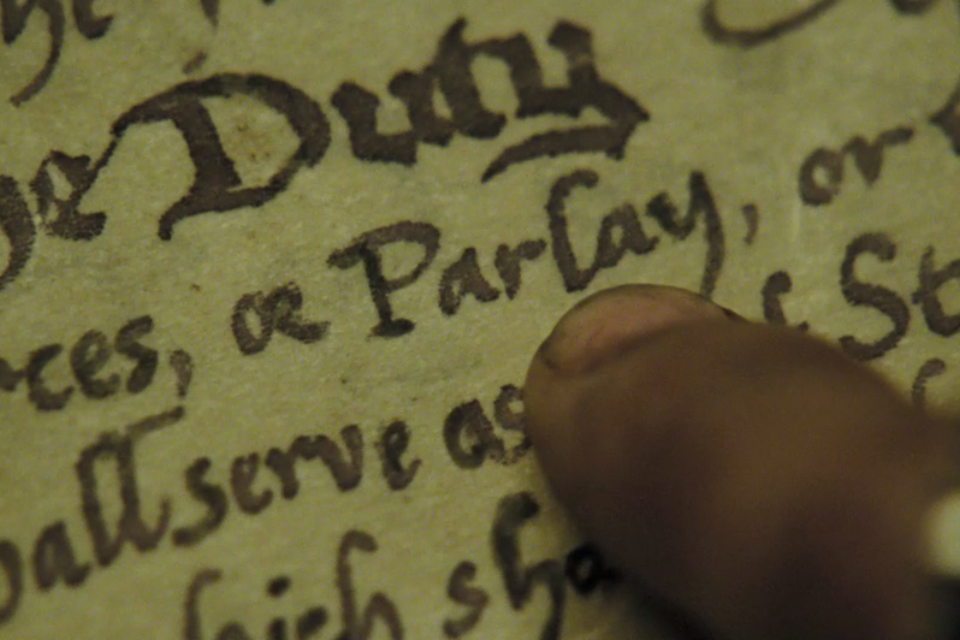 Duty
rces, or Parlay, or
all serve as
hich sha